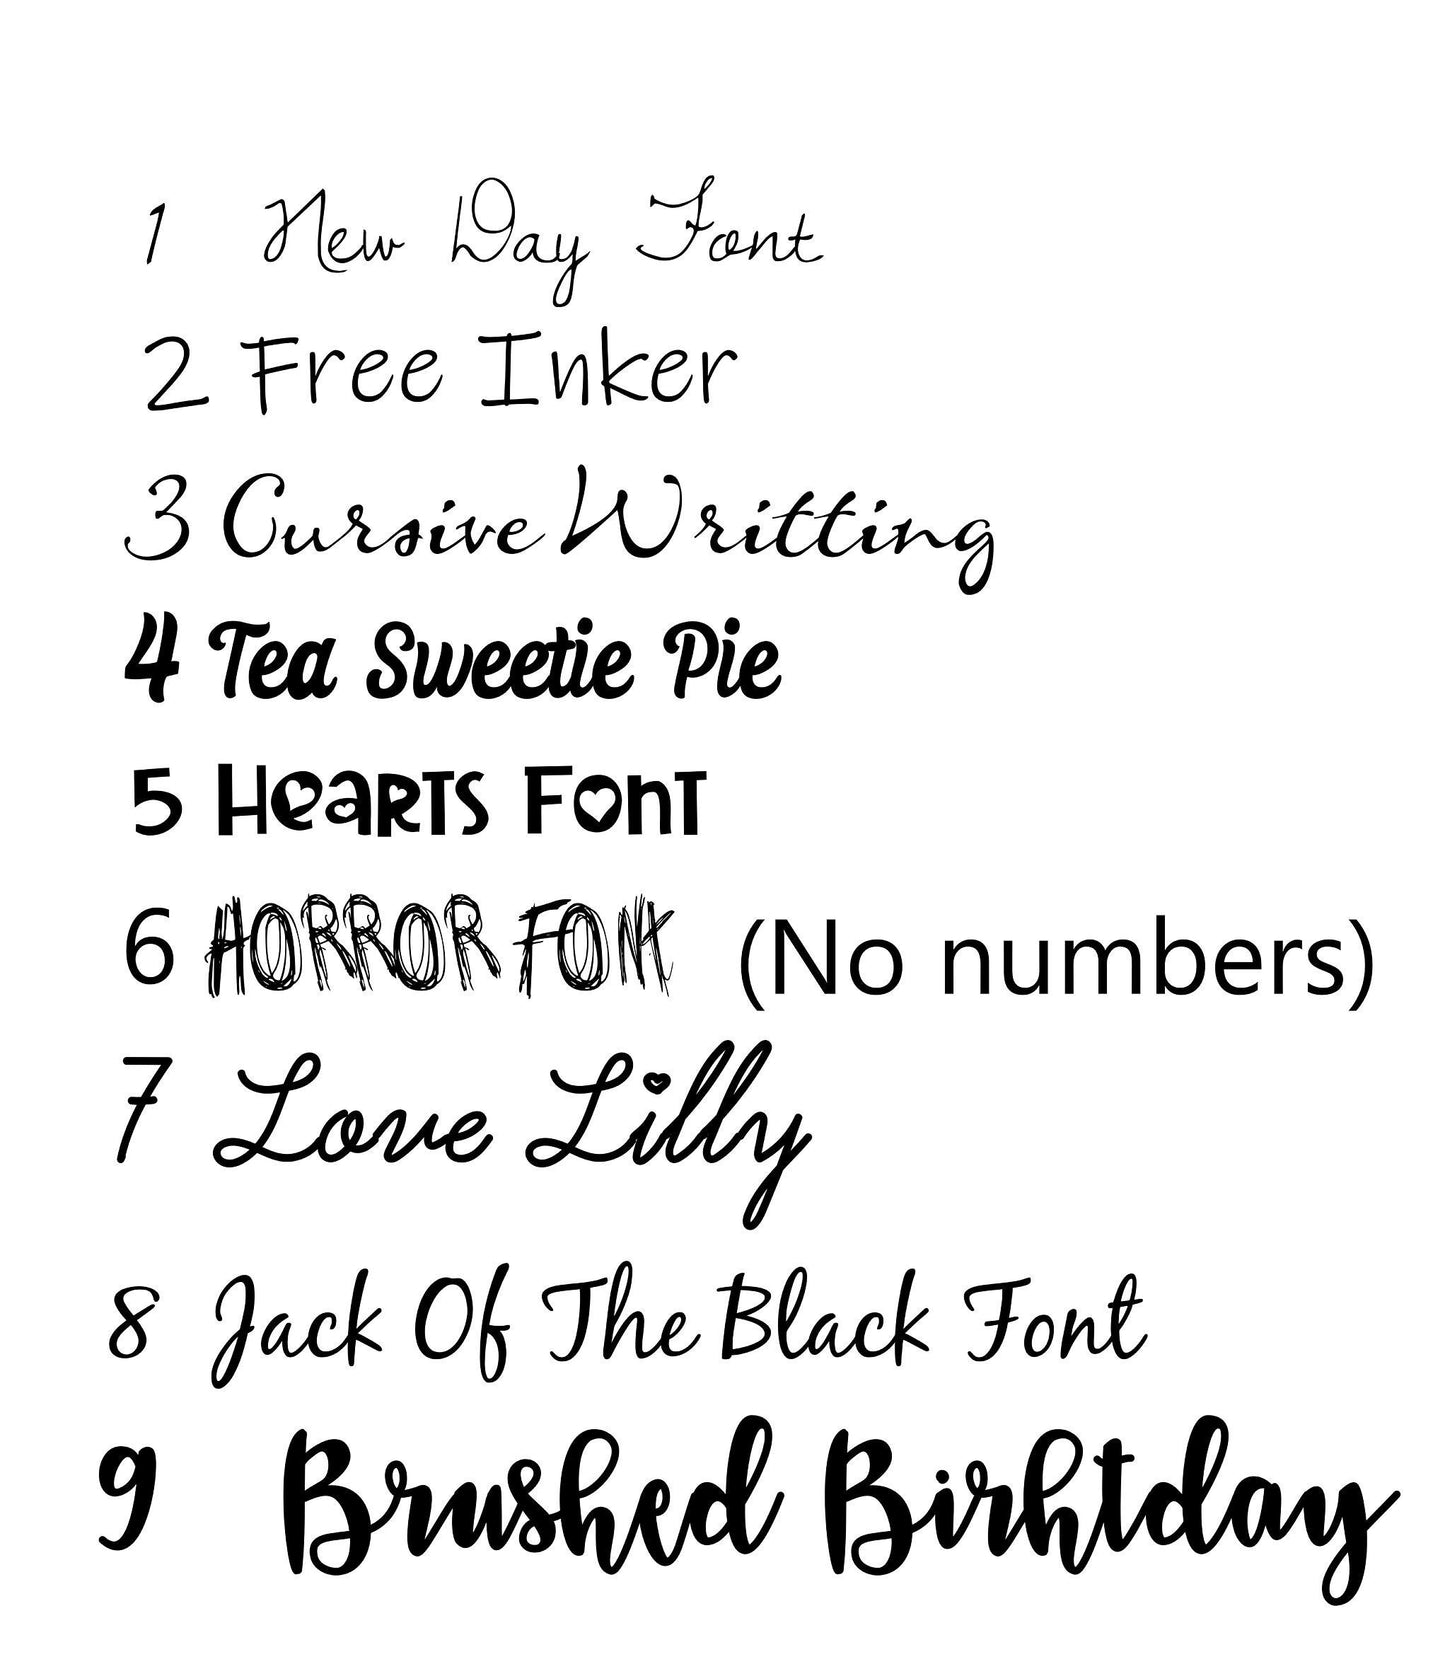 1 New Day Font
2 Free Inker
3 Cursive Writting
4 Tea Sweetie Pie
5 Hearts Font
6 HORROR FONT (No numbers)
7 Love Lilly
8 Jack Of The Black Font
9 Brushed Birhtday